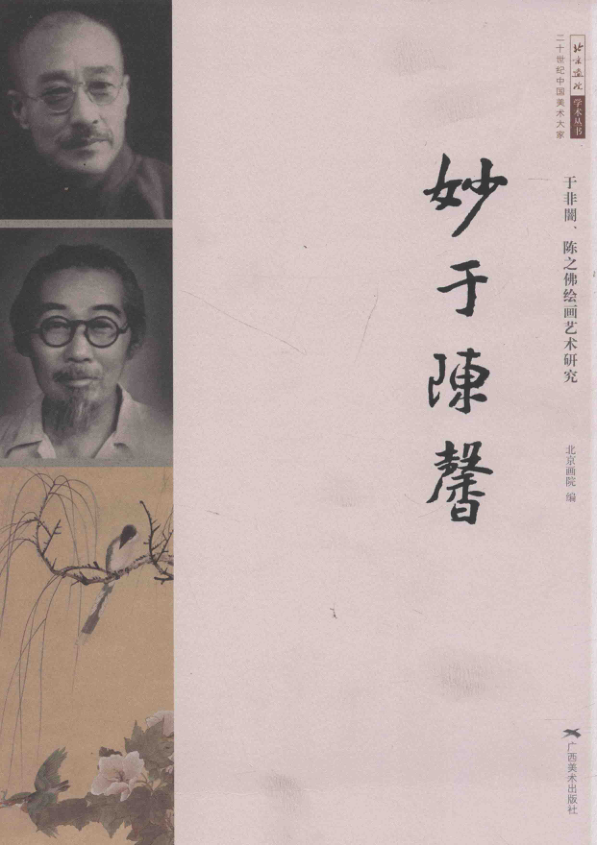 北京画院
学术丛书
二十世纪中国美术大家
于非闇、陈之佛绘画艺术研究
妙于陳馨
北京画院 编
广西美术出版社